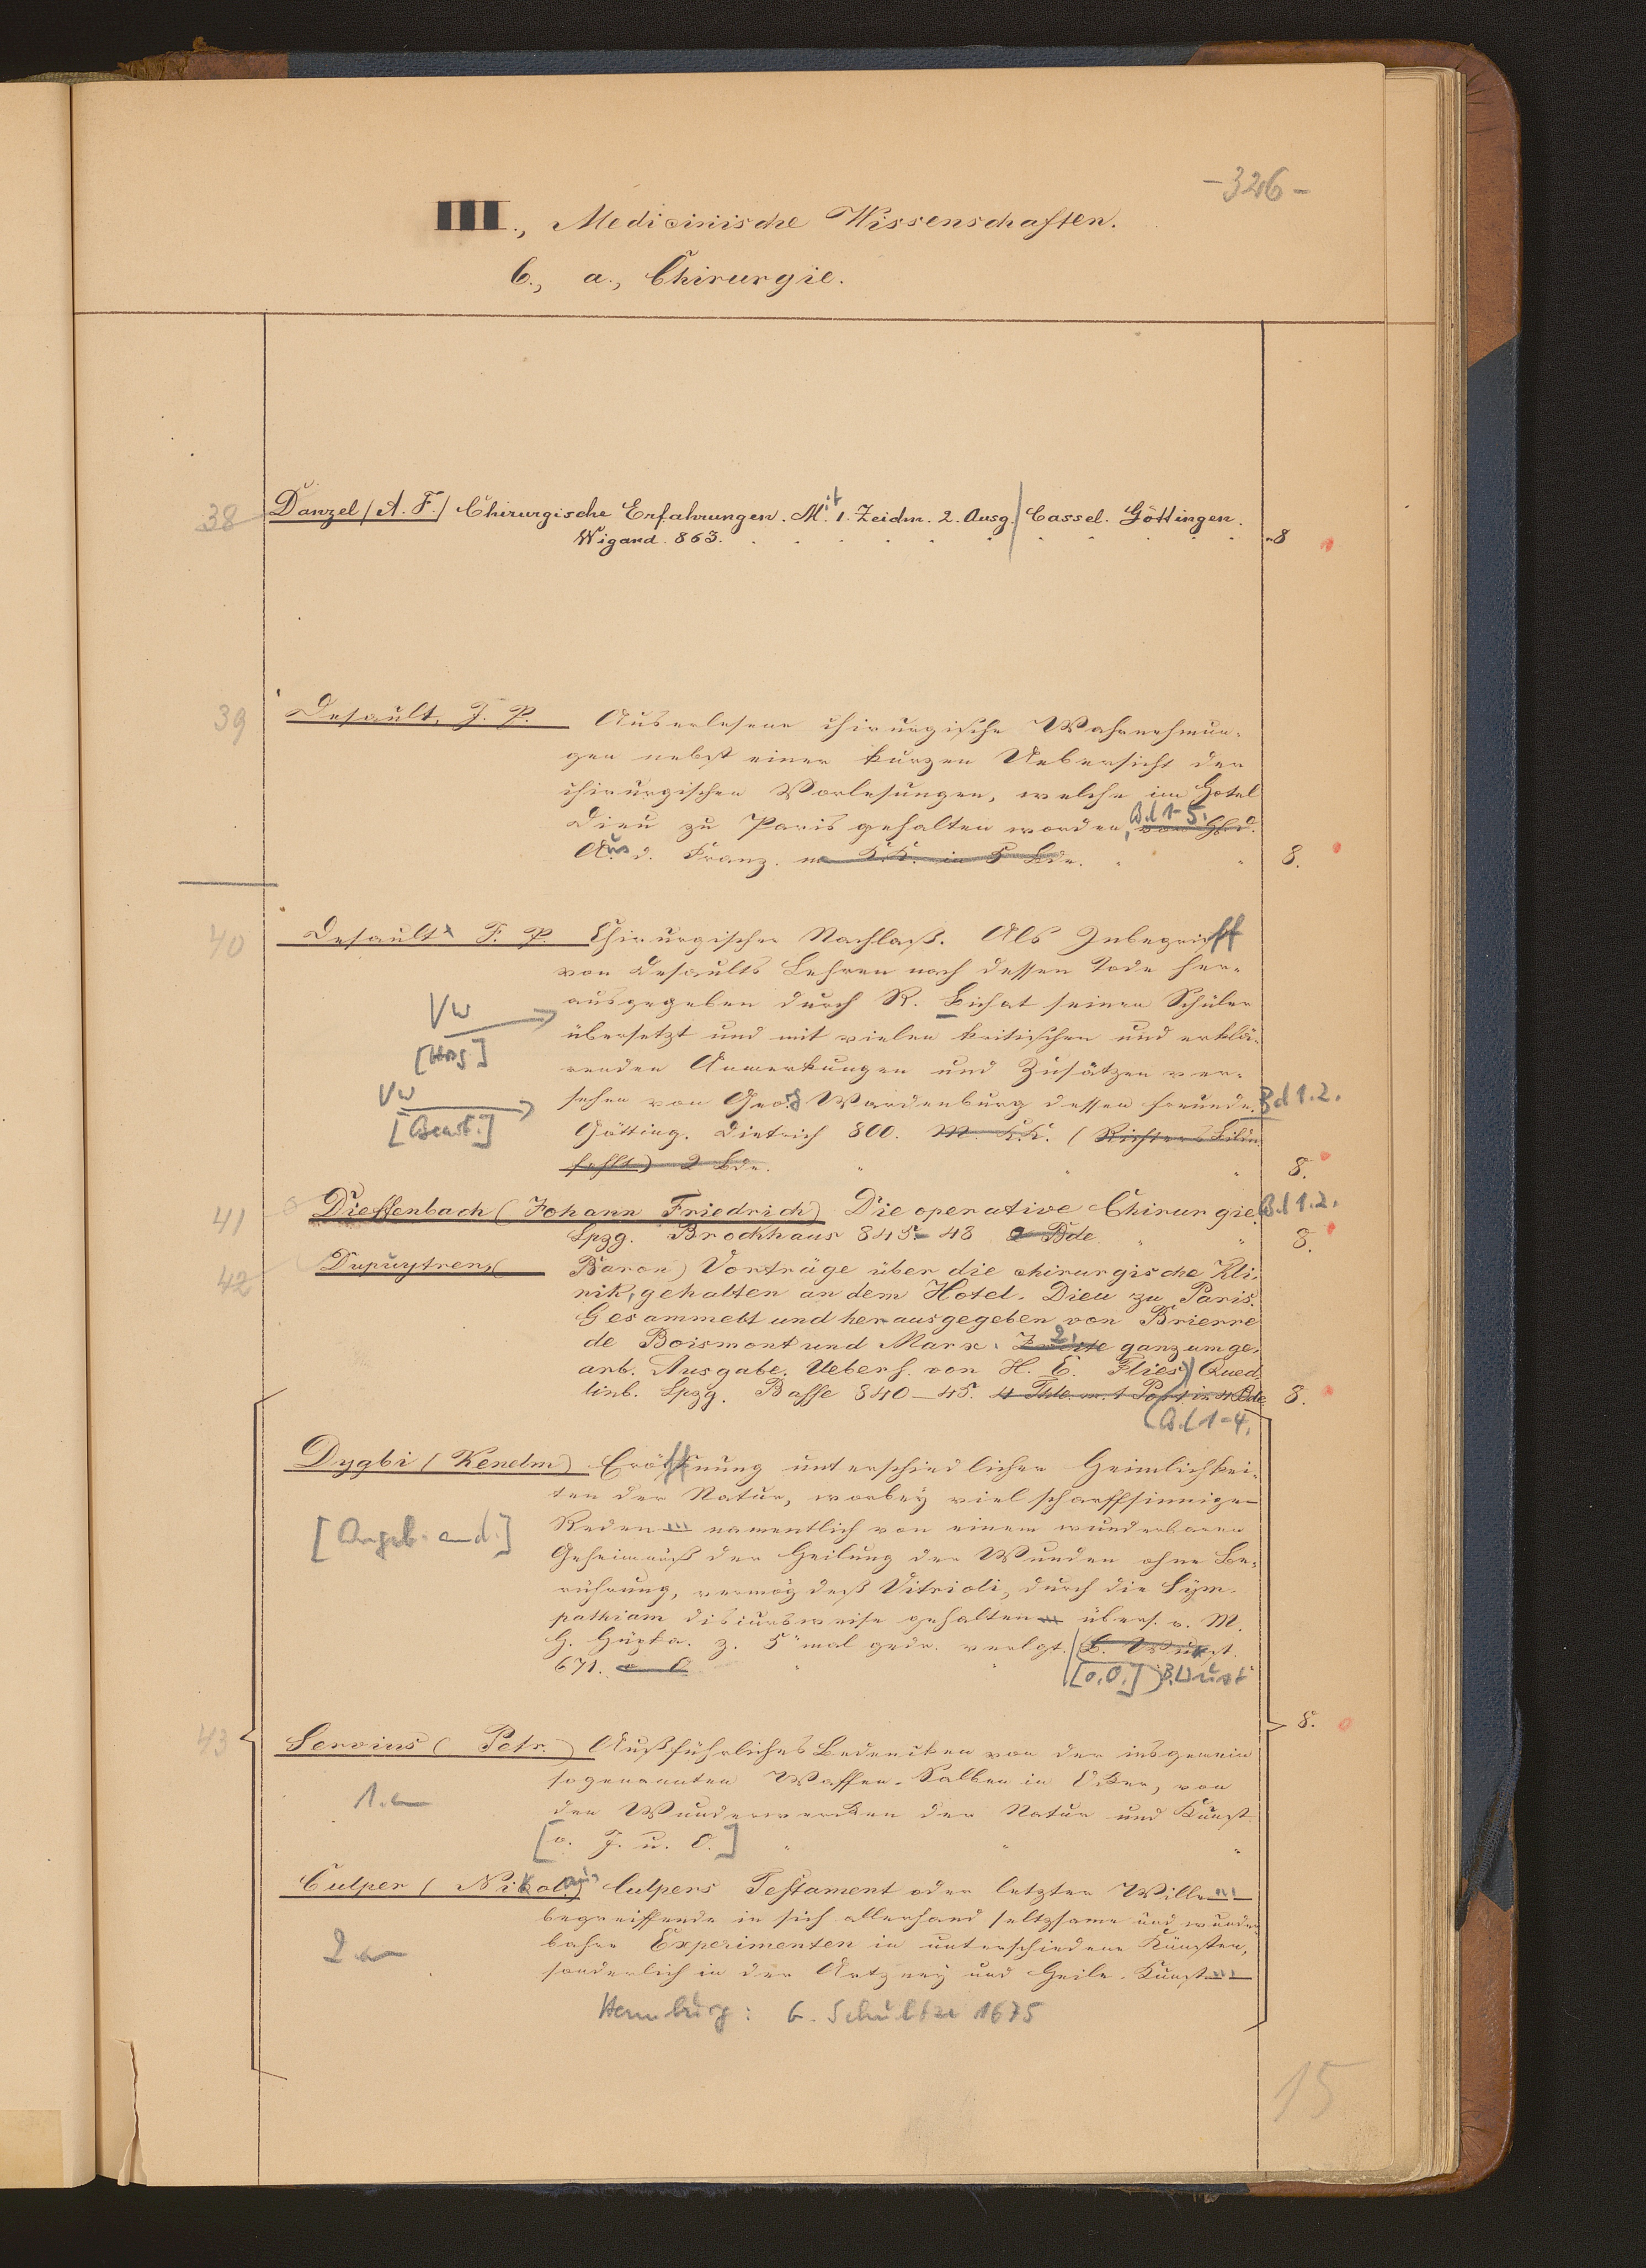 -326-
III., Medicinische Wissenschaften.
C., a., Chirurgie.
38 Danzel (A. F.) Chirurgische Erfahrungen. Mit 1. Zeichn. 2. Ausg. Cassel. Göttingen.
Wigand. 863. 8
39 Desault, J. P. Auserlesene chirurgische Wahrnehmun-
gen nebst einer kurzen Uebersicht der
chirurgischen Vorlesungen, welche im Hotel
Bd 1-5.
Dieu zu Paris gehalten worden, von Hfd.
Aus d. Franz. m K.K. in 5 Bde. 8.
40 Desault F. P. Chirurgischer Nachlaß. Als Inbegriff
von Desaults Lehren nach dessen Tode her-
ausgegeben durch R. Bichat seinen Schüler
VW
[Hrsg]
übersetzt und mit vielen kritischen und erklä-
renden Anmerkungen und Zusätzen ver-
VW
[Bearb.]
sehen von Georg Wardenburg dessen Freunde. Bd 1.2.
Götting. Dietrich 800. M. K.K. (Richters Bildn
fehlt) 2 Bde. 8.
41 Dieffenbach (Johann Friedrich) Die operative Chirurgie. Bd 1.2.
Lpzg. Brockhaus 845-48 2 Bde. 8.
42 Dupuytren, (Baron) Vorträge über die chirurgische Kli-
nik, gehalten an dem Hotel-Dieu zu Paris.
Gesammelt und herausgegeben von Brierre
de Boismont und Marx. Zweite 2. ganz umge-
arb. Ausgabe. Uebers. von H. E. Flies) Qued
linb. Lpzg. Basse 840-45. 4 Thle. m. 1 Port in 4 Bde 8.
(Bd 1-4.
Dygbi (Kenelm) Eröffnung unterschiedlicher Heimlichkei-
ten der Natur, worbey viel scharffsinnige
[Angeb. and.]
Reden ... namentlich von einem wunderbaren
Geheimnüß der Heilung der Wunden ohne Be-
rührung, vermög deß Vitrioli, durch die Sym-
pathiam discursweise gehalten ... übers. v. M.
H. Hupka. z. 5 mal gedr. verlgt. B. Wust.
671. o O [o.O.] B. Wust
8.
43 Servius (Petr.) Außführliches Bedencken von der insgemein
sogenannten Waffen-Salben in Ecker, von
1. an
den Wunderwercken der Natur und Kunst.
[o. J. u. O.]
Culper (Nikolaus) Culpers Testament oder letzter Wille ...
begreiffende in sich allerhand seltzsame und wunder
2 an
bahre Experimenten in unterschiedene Künsten,
sonderlich in der Artzney und Heile-Kunst ...
Hamburg: G. Schultze 1675
15